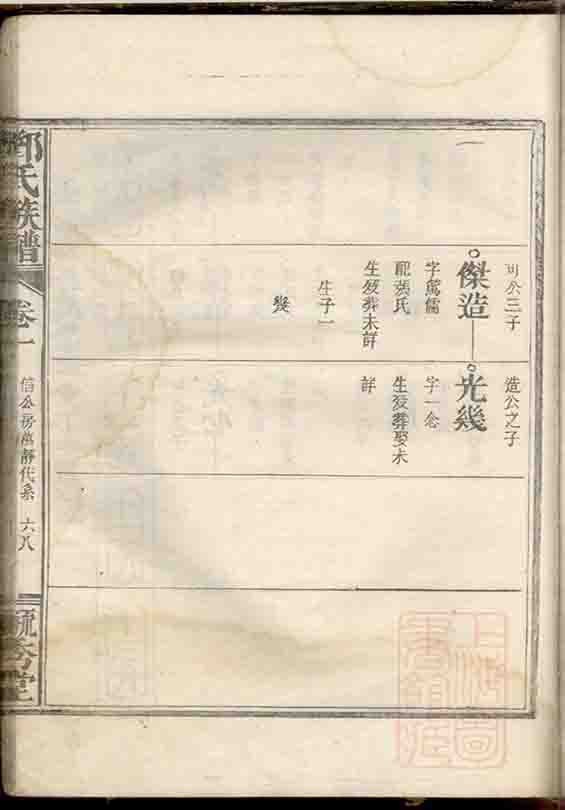 傑造
光幾
公三子
字篤儒
配張氏
生歿葬未詳
生子一
幾
造公之子
字一念
生歿葬娶未
詳
氏族譜
卷一
信公房萬靜代系 六八
毓秀堂
上海圖書館藏